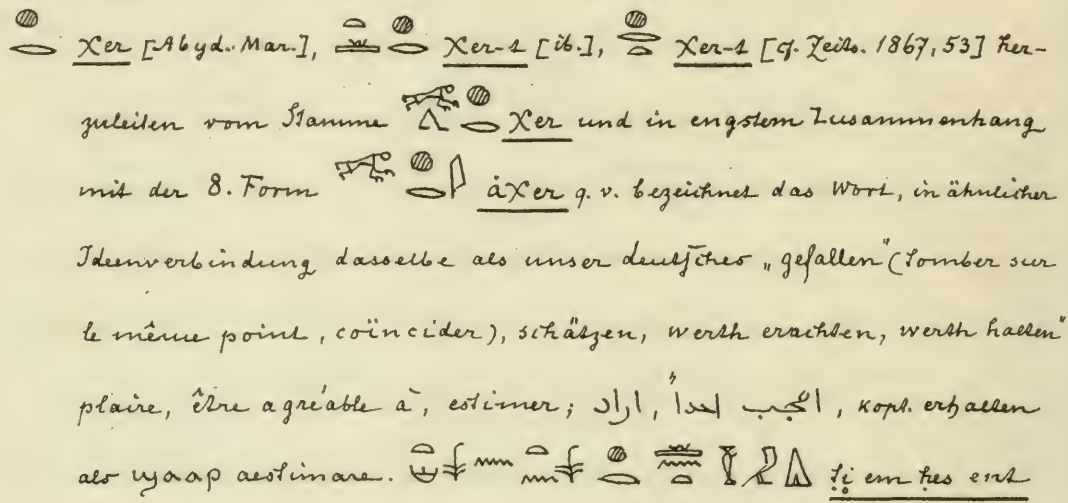 Xer [Abyd. Mar.], Xer-t [ib.], Xer-t [cf. Zeits. 1867, 53] her-
zuleiten vom Stamme Xer und in engstem Zusammenhang
mit der 8. Form àXer q. v. bezeichnet das Wort, in ähnlicher
Ideenverbindung dasselbe als unser deutsches „gefallen" (tomber sur
le même point, coïncider), schätzen, werth erachten, werth halten"
plaire, être agréable à, estimer; اراد, اعجب احداً, kopt. erhalten
als ϣⲁⲁⲣ aestimare. ṭi em ḥes ent